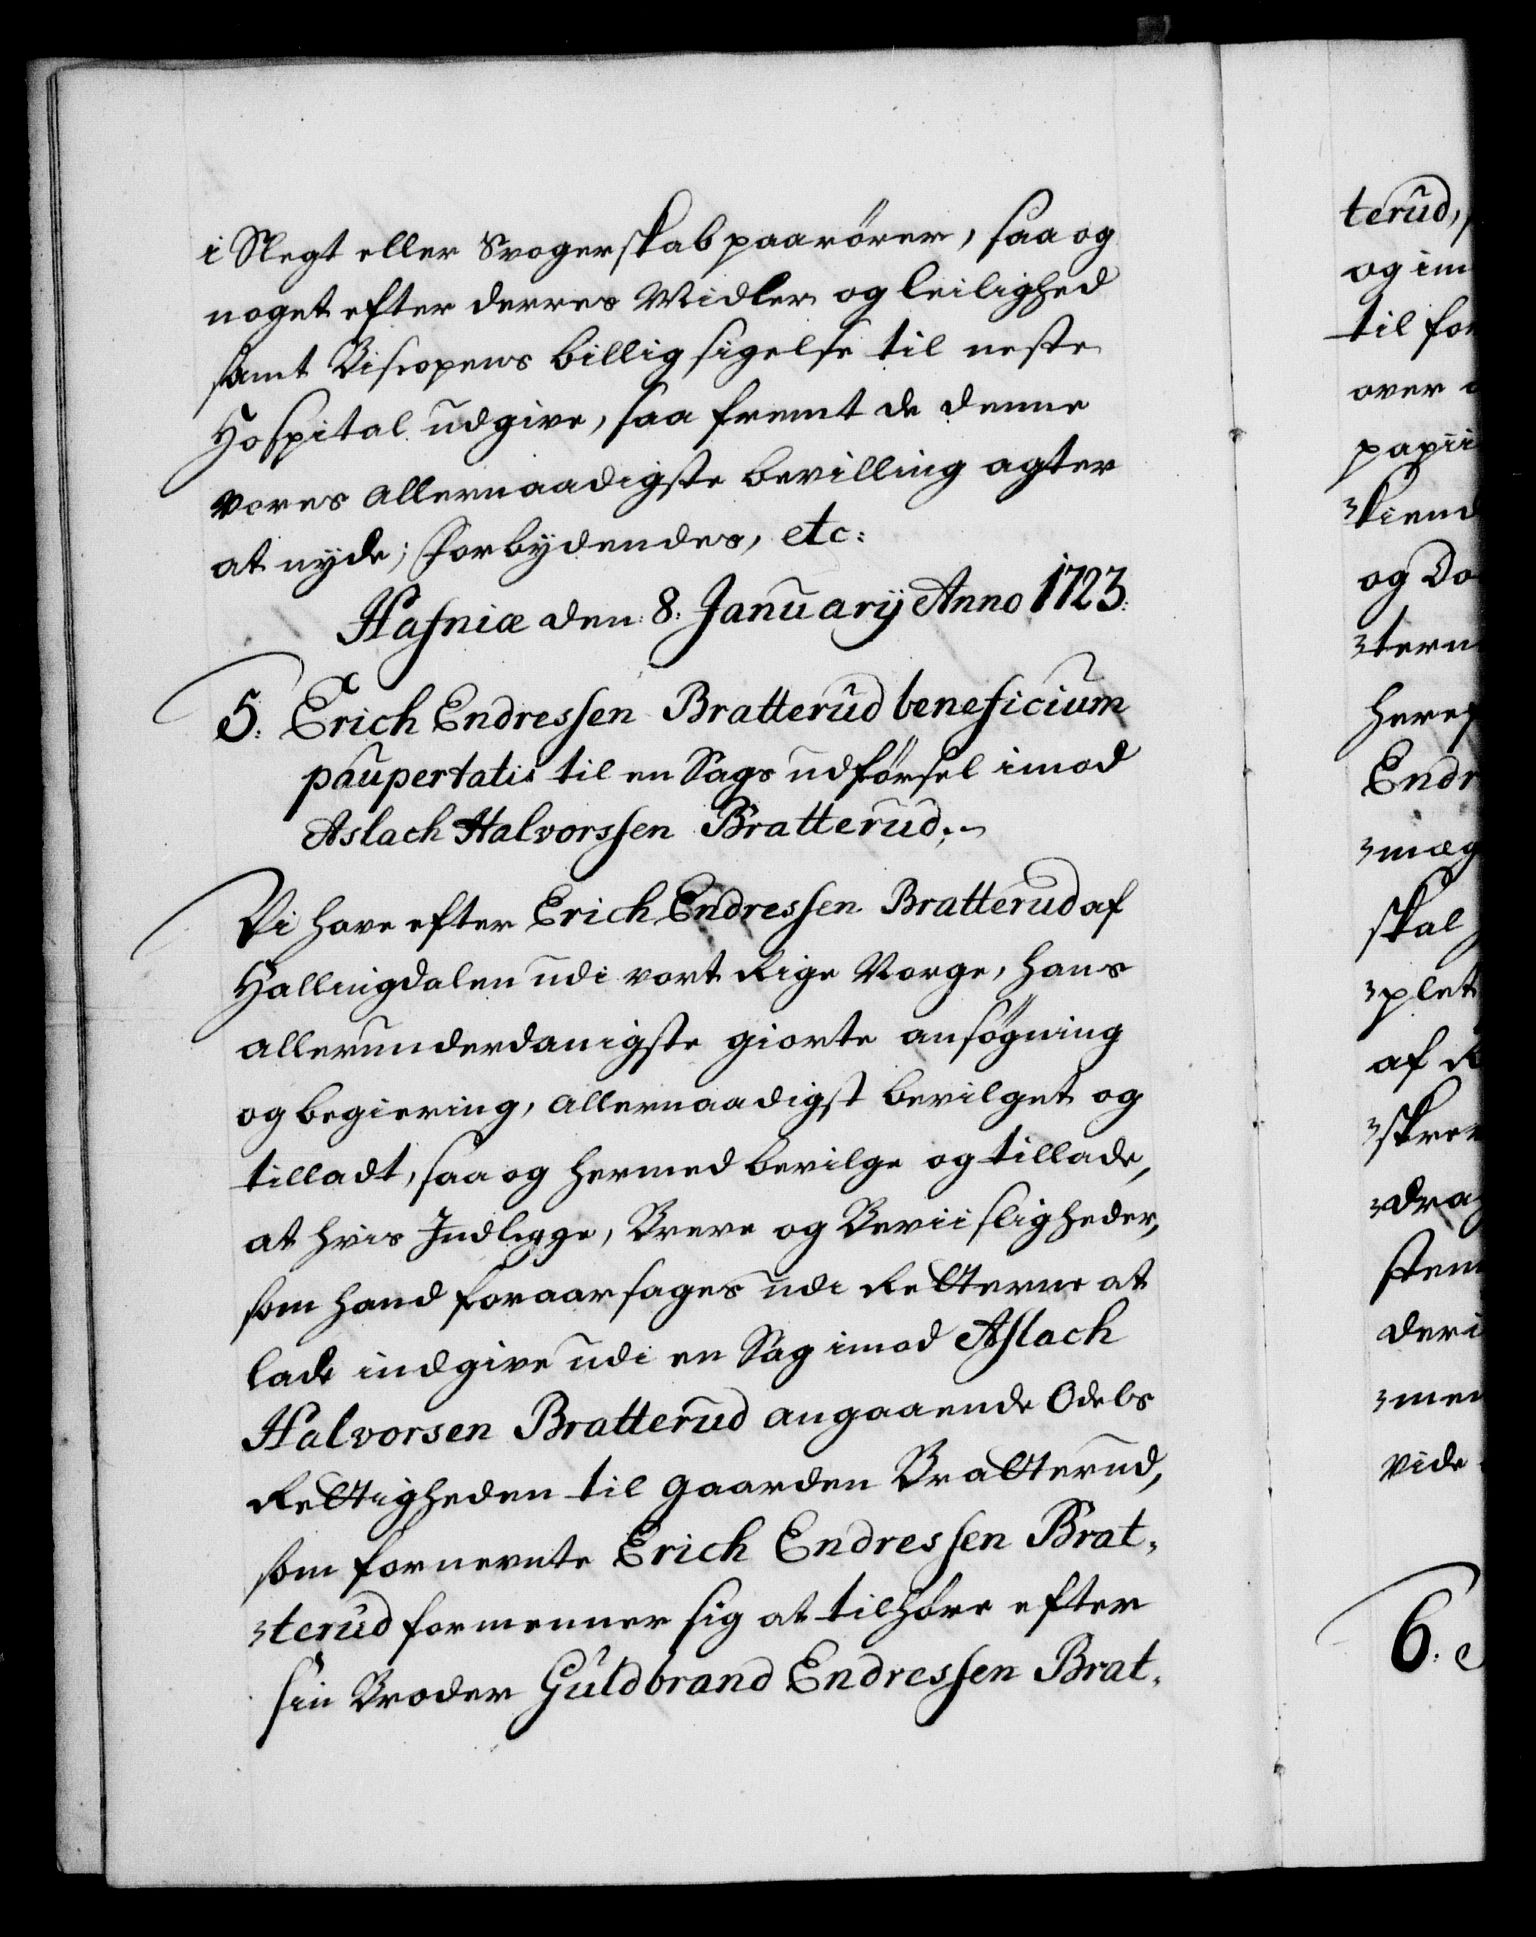 i Slegt eller Svogerskab paarörer, saa og
noget efter derres Midler og leilighed
samt Biscopens billigsigelse til neste
Hospital udgive, saa fremt de denne
vores allernaadigste bevilling agter
at nyde; Forbydendes, etc:
Hafniæ den: 8: Januarij Anno 1723:
5: Erich Endressen Bratterud beneficium
paupertatis til en Sags udförsel imod
Aslach Halvorssen Bratterud:
Vi have efter Erich Endressen Bratterud af
Hallingdalen udi vort Rige Norge, hans
allerunderdanigste giorte ansögning
og begiering, allernaadigst bevilget og
tilladt, saa og hermed bevilge og tillade,
at hvis Indlegge, Breve og Beviisligheder,
som hand foraarsages udi Retterne at
lade indgive udi en Sag imod Aslach
Halvorsen Bratterud angaaende Odels
Rettigheden til gaarden Bratterud,
som fornevnte Erich Endressen Brat-
terud formenner sig at tilhöre efter
sin Broder Guldbrand Endressen Brat-
terud,
og im
til for
over
papii
skiend
og Do
tern
heref
Endr
mæg
skal
plet
af R
skrev
drag
sten
deri
men
vide
6.